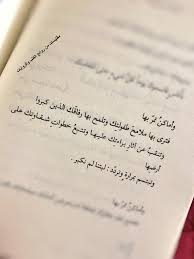 وأماكنُ تمرّ بها
فترى بها ملامح طفولتك وتلمح بها رفاقك الذين كبروا
وتنقب عن آثار براءتك عليها وتتبع خطوات شقاوتك على
أرضها
وتبتسم بمرارة وتردّد : ليتنا لم نكبر .
وأماكنُ تمرّ بها